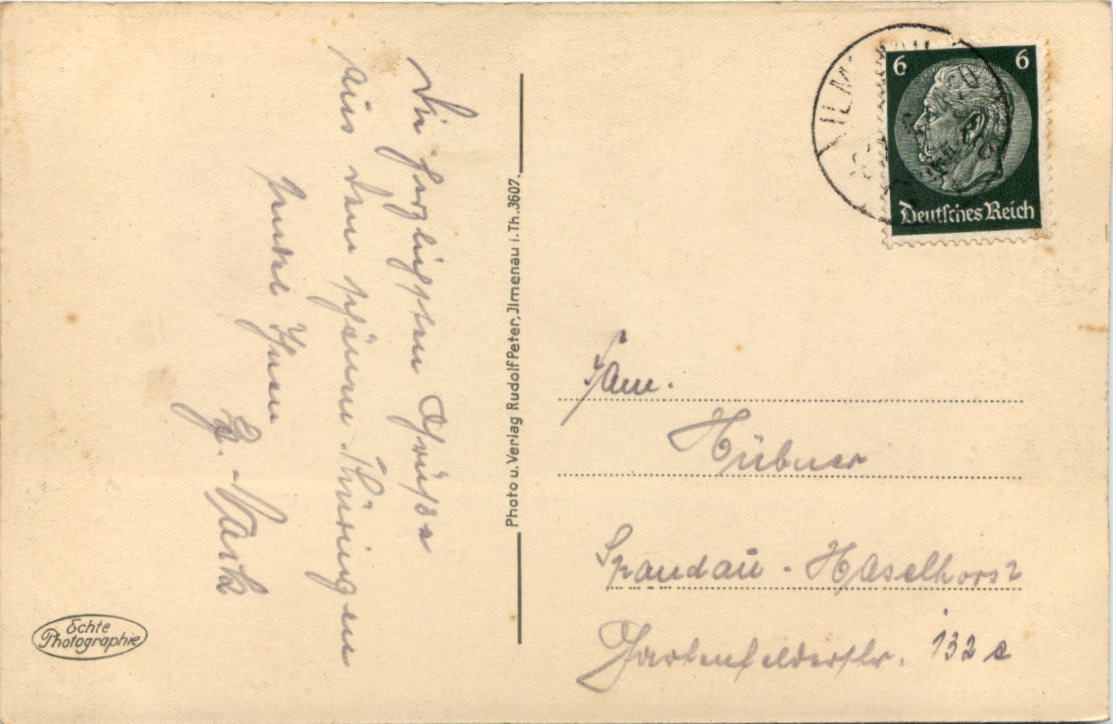 Die herzlichsten Grüße
aus dem schönen Thüringen
sendet Ihnen
Photo u. Verlag Rudolf Peter, Jlmenau i. Th. 3607.
Echte
Photographie
6 6
Deutsches Reich
Fam.
Hübner
Spandau - Haselhorst
Gartenfelderstr. 132